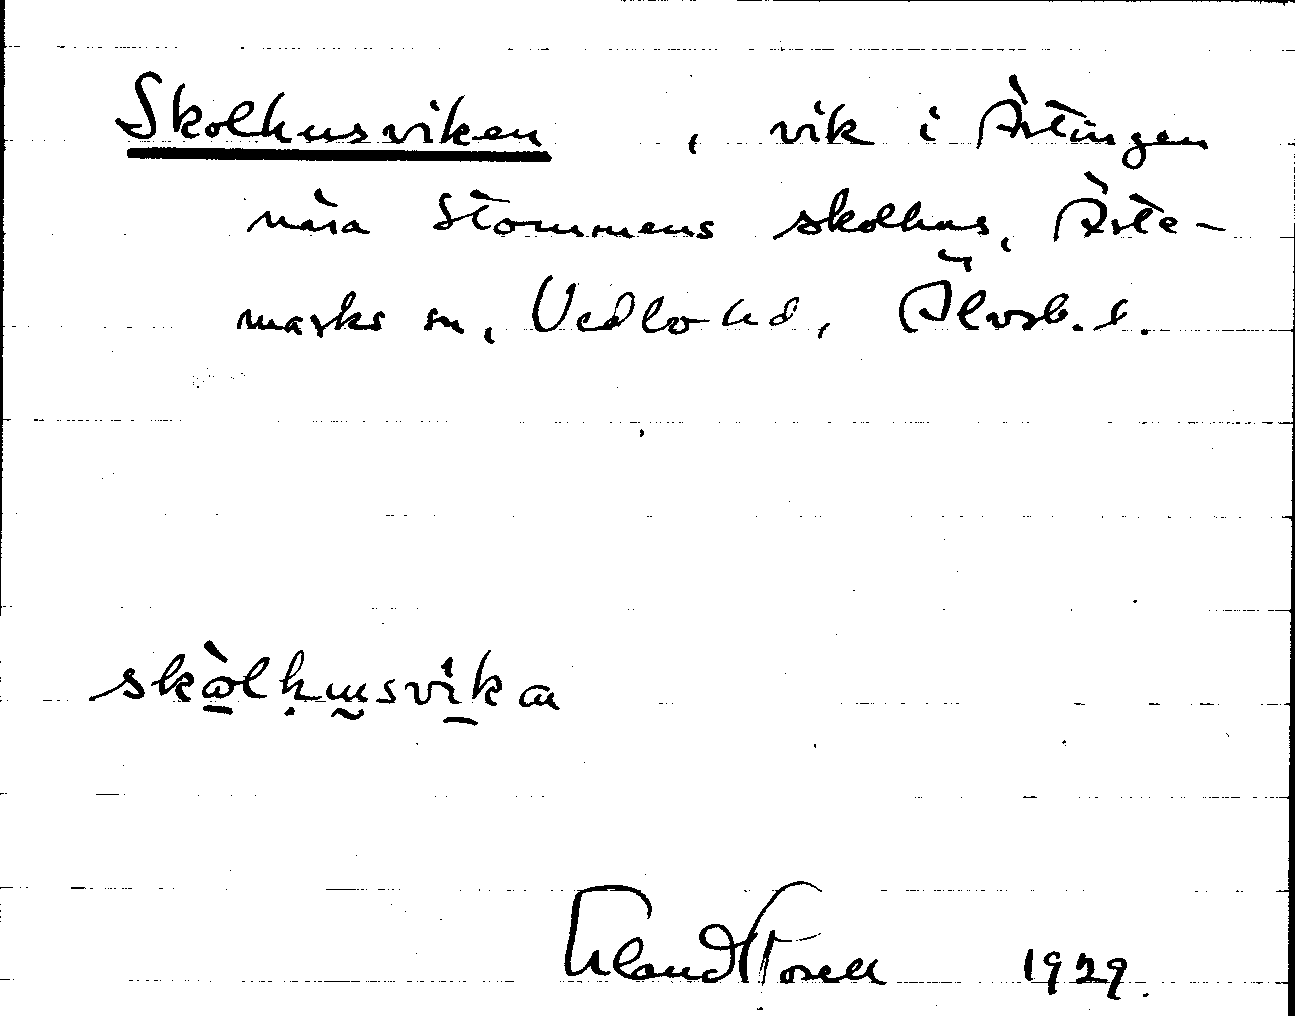 Skolhusviken , vik i Ärtingen
nära Stommens skolhus, Ärte-
marks sn, Vedbo hd, Älvsb. l.
skòlhusvika
1929.